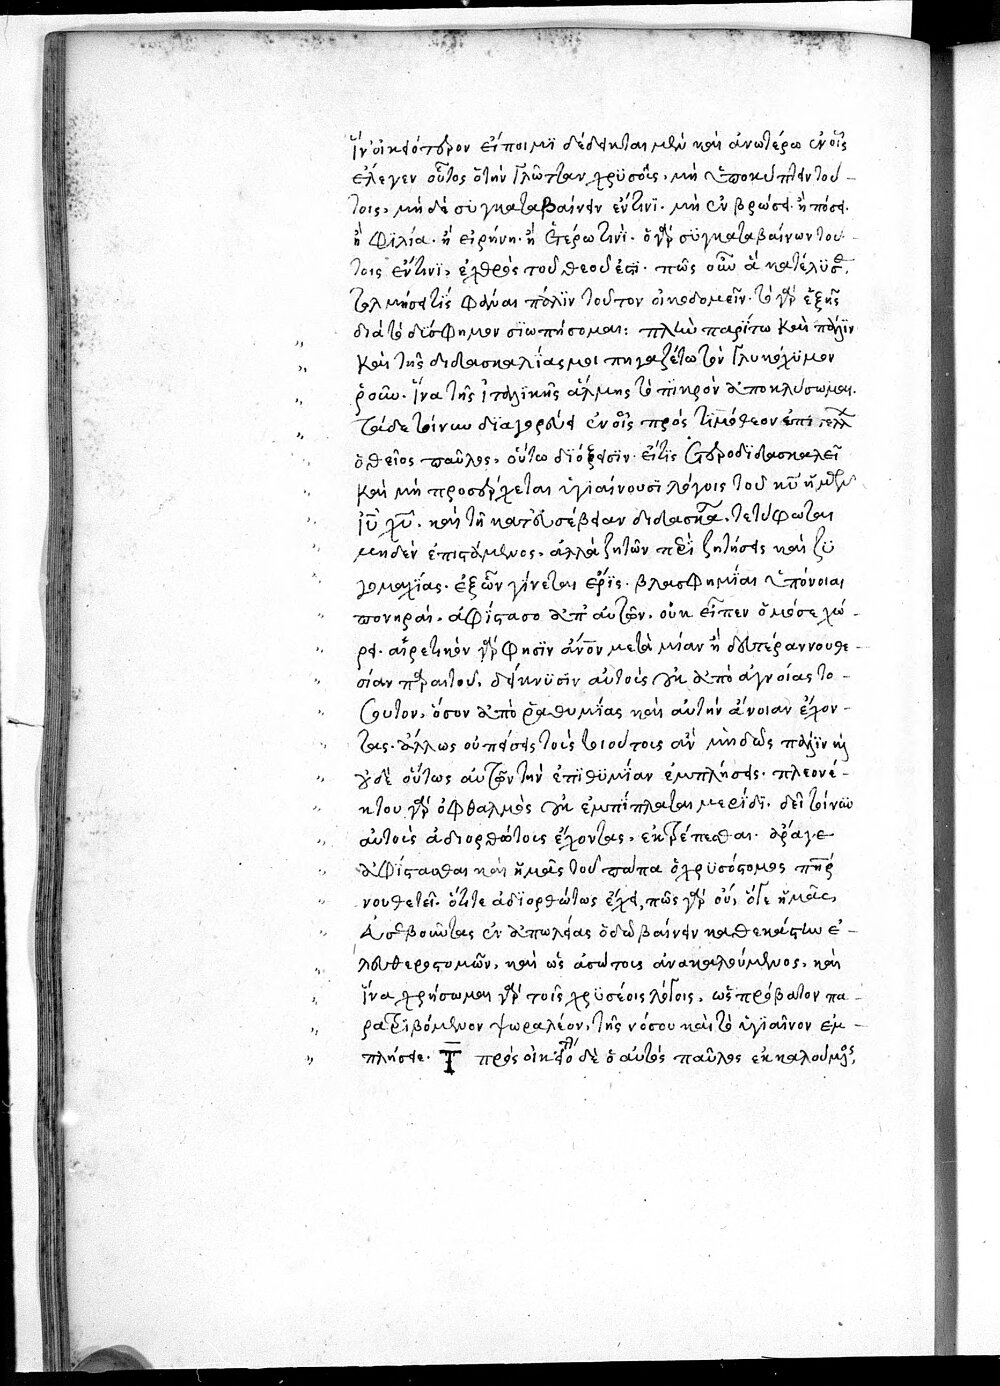 ἵν' οἰκειότερον εἴποιμι δέδεικται μὲν καὶ ἀνωτέρω ἐν οἷς
ἔλεγεν οὗτος ὁ τὴν γλῶτταν χρυσοῦς, μὴ ὑποκύπτειν τού-
τοις, μὴ δὲ συγκαταβαίνειν ἔν τινι. μὴ ἐν βρώσει. ἢ πόσει.
ἢ φιλία. ἢ εἰρήνη. ἢ ἑτέρω τινί. ὁ γὰρ συγκαταβαίνων τού-
τοις ἔν τινι, ἐχθρὸς τοῦ θεοῦ ἐστι. πῶς οὖν ἃ κατέλυσε,
τολμήσει τίς φάναι πάλιν τοῦτον οἰκοδομεῖν. τὸ γὰρ ἑξῆς
διὰ τὸ δύσφημον σιωπήσομαι: πλὴν παρίτω καὶ πάλιν
καὶ τῆς διδασκαλίας μοι πηγαζέτω τὸν γλυκόχυμον
ῥοῦν. ἵνα τῆς ἰταλικῆς ἅλμης τὸ πικρὸν ἀποκλύσωμαι.
Τάδε τοίνυν διαγορεύει ἐν οἷς πρὸς τιμόθεον
ὁ θεῖος παῦλος, οὕτω διέξεισιν. εἴ τις ἑτεροδιδασκαλεῖ
καὶ μὴ προσέρχεται ὑγιαίνουσι λόγοις τοῦ κυ ἡμῶν
ιυ χυ. καὶ τῆ κατ' εὐσέβειαν διδασκαλία, τετύφωται
μηδὲν ἐπιστάμενος. ἀλλὰ ζητῶν περὶ ζητήσεις καὶ ζυ
γομαχίας. ἐξ ὧν γίνεται ἔρις. βλασφημίαι ὑπόνοιαι
πονηραί. ἀφίστασο ἀπ' αὐτῶν. οὐκ εἶπεν ὁμόσε χώ-
ρει. αἱρετικὸν γὰρ φησὶν ἄνον μετὰ μίαν ἢ δευτέραν νουθε-
σίαν παραιτοῦ. δείκνυσιν αὐτοὺς οὐκ ἀπὸ ἀγνοίας το-
σοῦτον, ὅσον ἀπὸ ῥαθυμίας καὶ αὐτὴν ἄνοιαν ἔχον-
τας. ἄλλως οὐ πείσεις τοὺς τοιούτους ἂν μὴ δῶς πάλιν
οὐδὲ οὕτως αὐτῶν τὴν ἐπιθυμίαν ἐμπλήσεις. πλεονέ-
κτου γὰρ ὀφθαλμὸς οὐκ ἐμπίπλαται μερίδι. δεῖ τοίνυν
αὐτοὺς ἀδιορθώτους ἔχοντας, ἐκτρέπεσθαι. ἆράγε
ἀφίστασθαι καὶ ἡμᾶς τοῦ πάπα ὁ χρυσόστομος πηρ
νουθετεῖ. ὅτι τε ἀδιορθώτως ἔχει, πῶς γὰρ οὔ, ὅτε ἡμᾶς,
εὐσεβοῦντας ἐν ἀπωλείας ὁδῶ βαίνειν καθεκάστην ἐ-
λευθεροστομῶν, καὶ ὡς ἀσώτους ἀνακαλούμενος, καὶ
ἵνα χρήσωμαι γὰρ τοῖς χρυσέοις λόγοις. ὡς πρόβατον πα-
ρατριβόμενον ψωραλέον, τῆς νόσου καὶ τὸ ὑγιαῖνον ἐμ-
πλήσει. Τ πρὸς οἷς δὲ ὁ αὐτὸς παῦλος ἐκκαλούμενος,